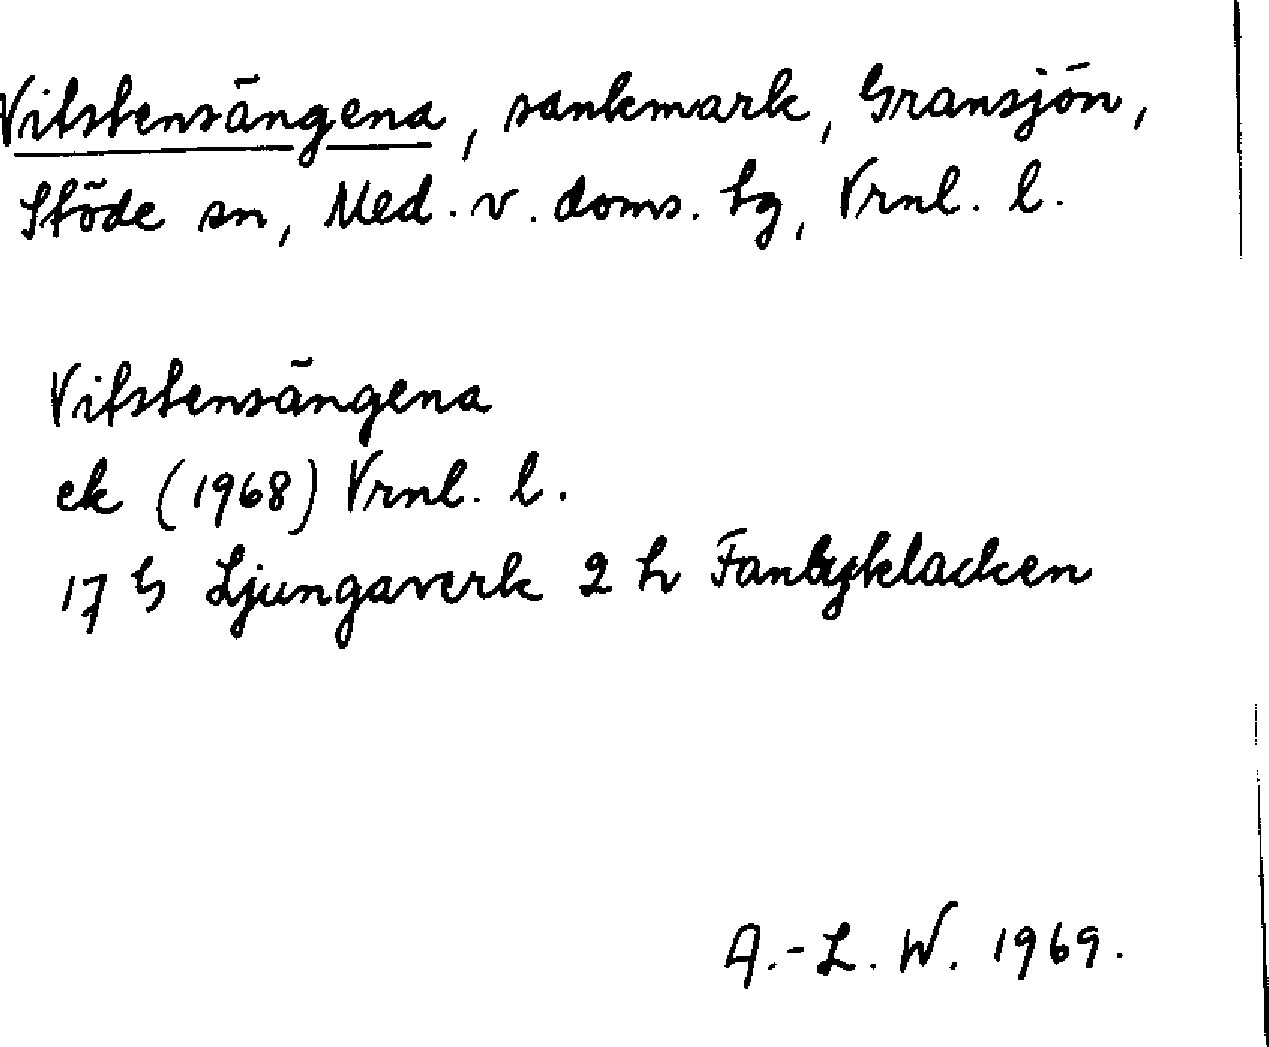 Vitstensängena, sankmark, Gransjön,
Stöde sn, Med. v. doms. tg, Vrnl. l.
Vitstensängena
ek (1968) Vrnl. l.
17 G Ljungaverk 2 h Fanbyklacken
A.-L. W. 1969.